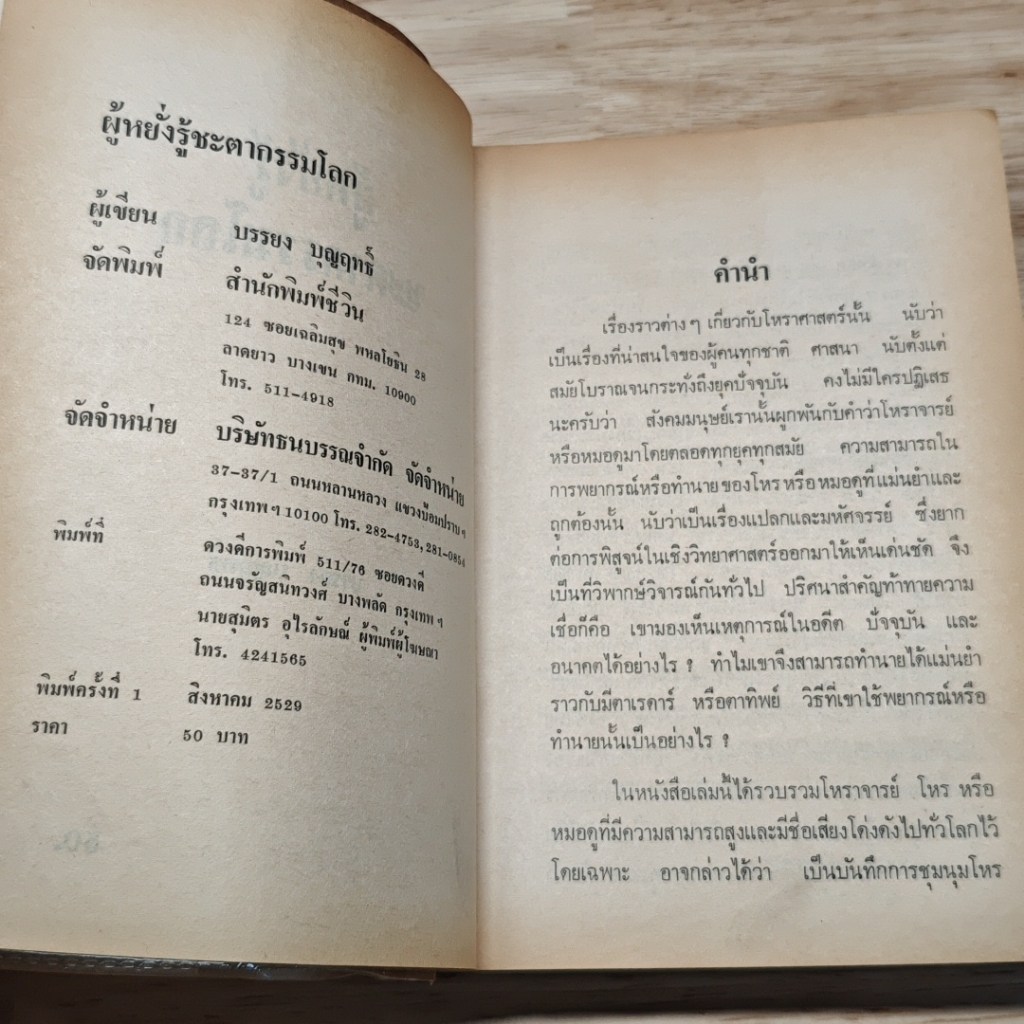 ผู้หยั่งรู้ชะตากรรมโลก
ผู้เขียน บรรยง บุญฤทธิ์
จัดพิมพ์ สำนักพิมพ์ชีวิน
124 ซอยเฉลิมสุข พหลโยธิน 28
ลาดยาว บางเขน กทม. 10900
โทร. 511-4918
จัดจำหน่าย บริษัทธนบรรณจำกัด จัดจำหน่าย
37-37/1 ถนนหลานหลวง แขวงป้อมปราบฯ
กรุงเทพฯ 10100 โทร. 282-4753, 281-0854
พิมพ์ที่ ดวงดีการพิมพ์ 511/76 ซอยดวงดี
ถนนจรัญสนิทวงศ์ บางพลัด กรุงเทพฯ
นายสุมิตร อุไรลักษณ์ ผู้พิมพ์ผู้โฆษณา
โทร. 4241565
พิมพ์ครั้งที่ 1 สิงหาคม 2529
ราคา 50 บาท
คำนำ
เรื่องราวต่างๆ เกี่ยวกับโหราศาสตร์นั้น นับว่า
เป็นเรื่องที่น่าสนใจของผู้คนทุกชาติ ศาสนา นับตั้งแต่
สมัยโบราณจนกระทั่งถึงยุคปัจจุบัน คงไม่มีใครปฏิเสธ
นะครับว่า สังคมมนุษย์เรานั้นผูกพันกับคำว่าโหราจารย์
หรือหมอดูมาโดยตลอดทุกยุคทุกสมัย ความสามารถใน
การพยากรณ์หรือทำนายของโหรหรือหมอดูที่แม่นยำและ
ถูกต้องนั้น นับว่าเป็นเรื่องแปลกและมหัศจรรย์ ซึ่งยาก
ต่อการพิสูจน์ในเชิงวิทยาศาสตร์ออกมาให้เห็นเด่นชัด จึง
เป็นที่วิพากษ์วิจารณ์กันทั่วไป ปริศนาสำคัญท้าทายความ
เชื่อก็คือ เขามองเห็นเหตุการณ์ในอดีต ปัจจุบัน และ
อนาคตได้อย่างไร ? ทำไมเขาจึงสามารถทำนายได้แม่นยำ
ราวกับมีตาเรดาร์ หรือตาทิพย์ วิธีที่เขาใช้พยากรณ์หรือ
ทำนายนั้นเป็นอย่างไร ?
ในหนังสือเล่มนี้ได้รวบรวมโหราจารย์ โหร หรือ
หมอดูที่มีความสามารถสูงและมีชื่อเสียงโด่งดังไปทั่วโลกไว้
โดยเฉพาะ อาจกล่าวได้ว่า เป็นบันทึกการชุมนุมโหร